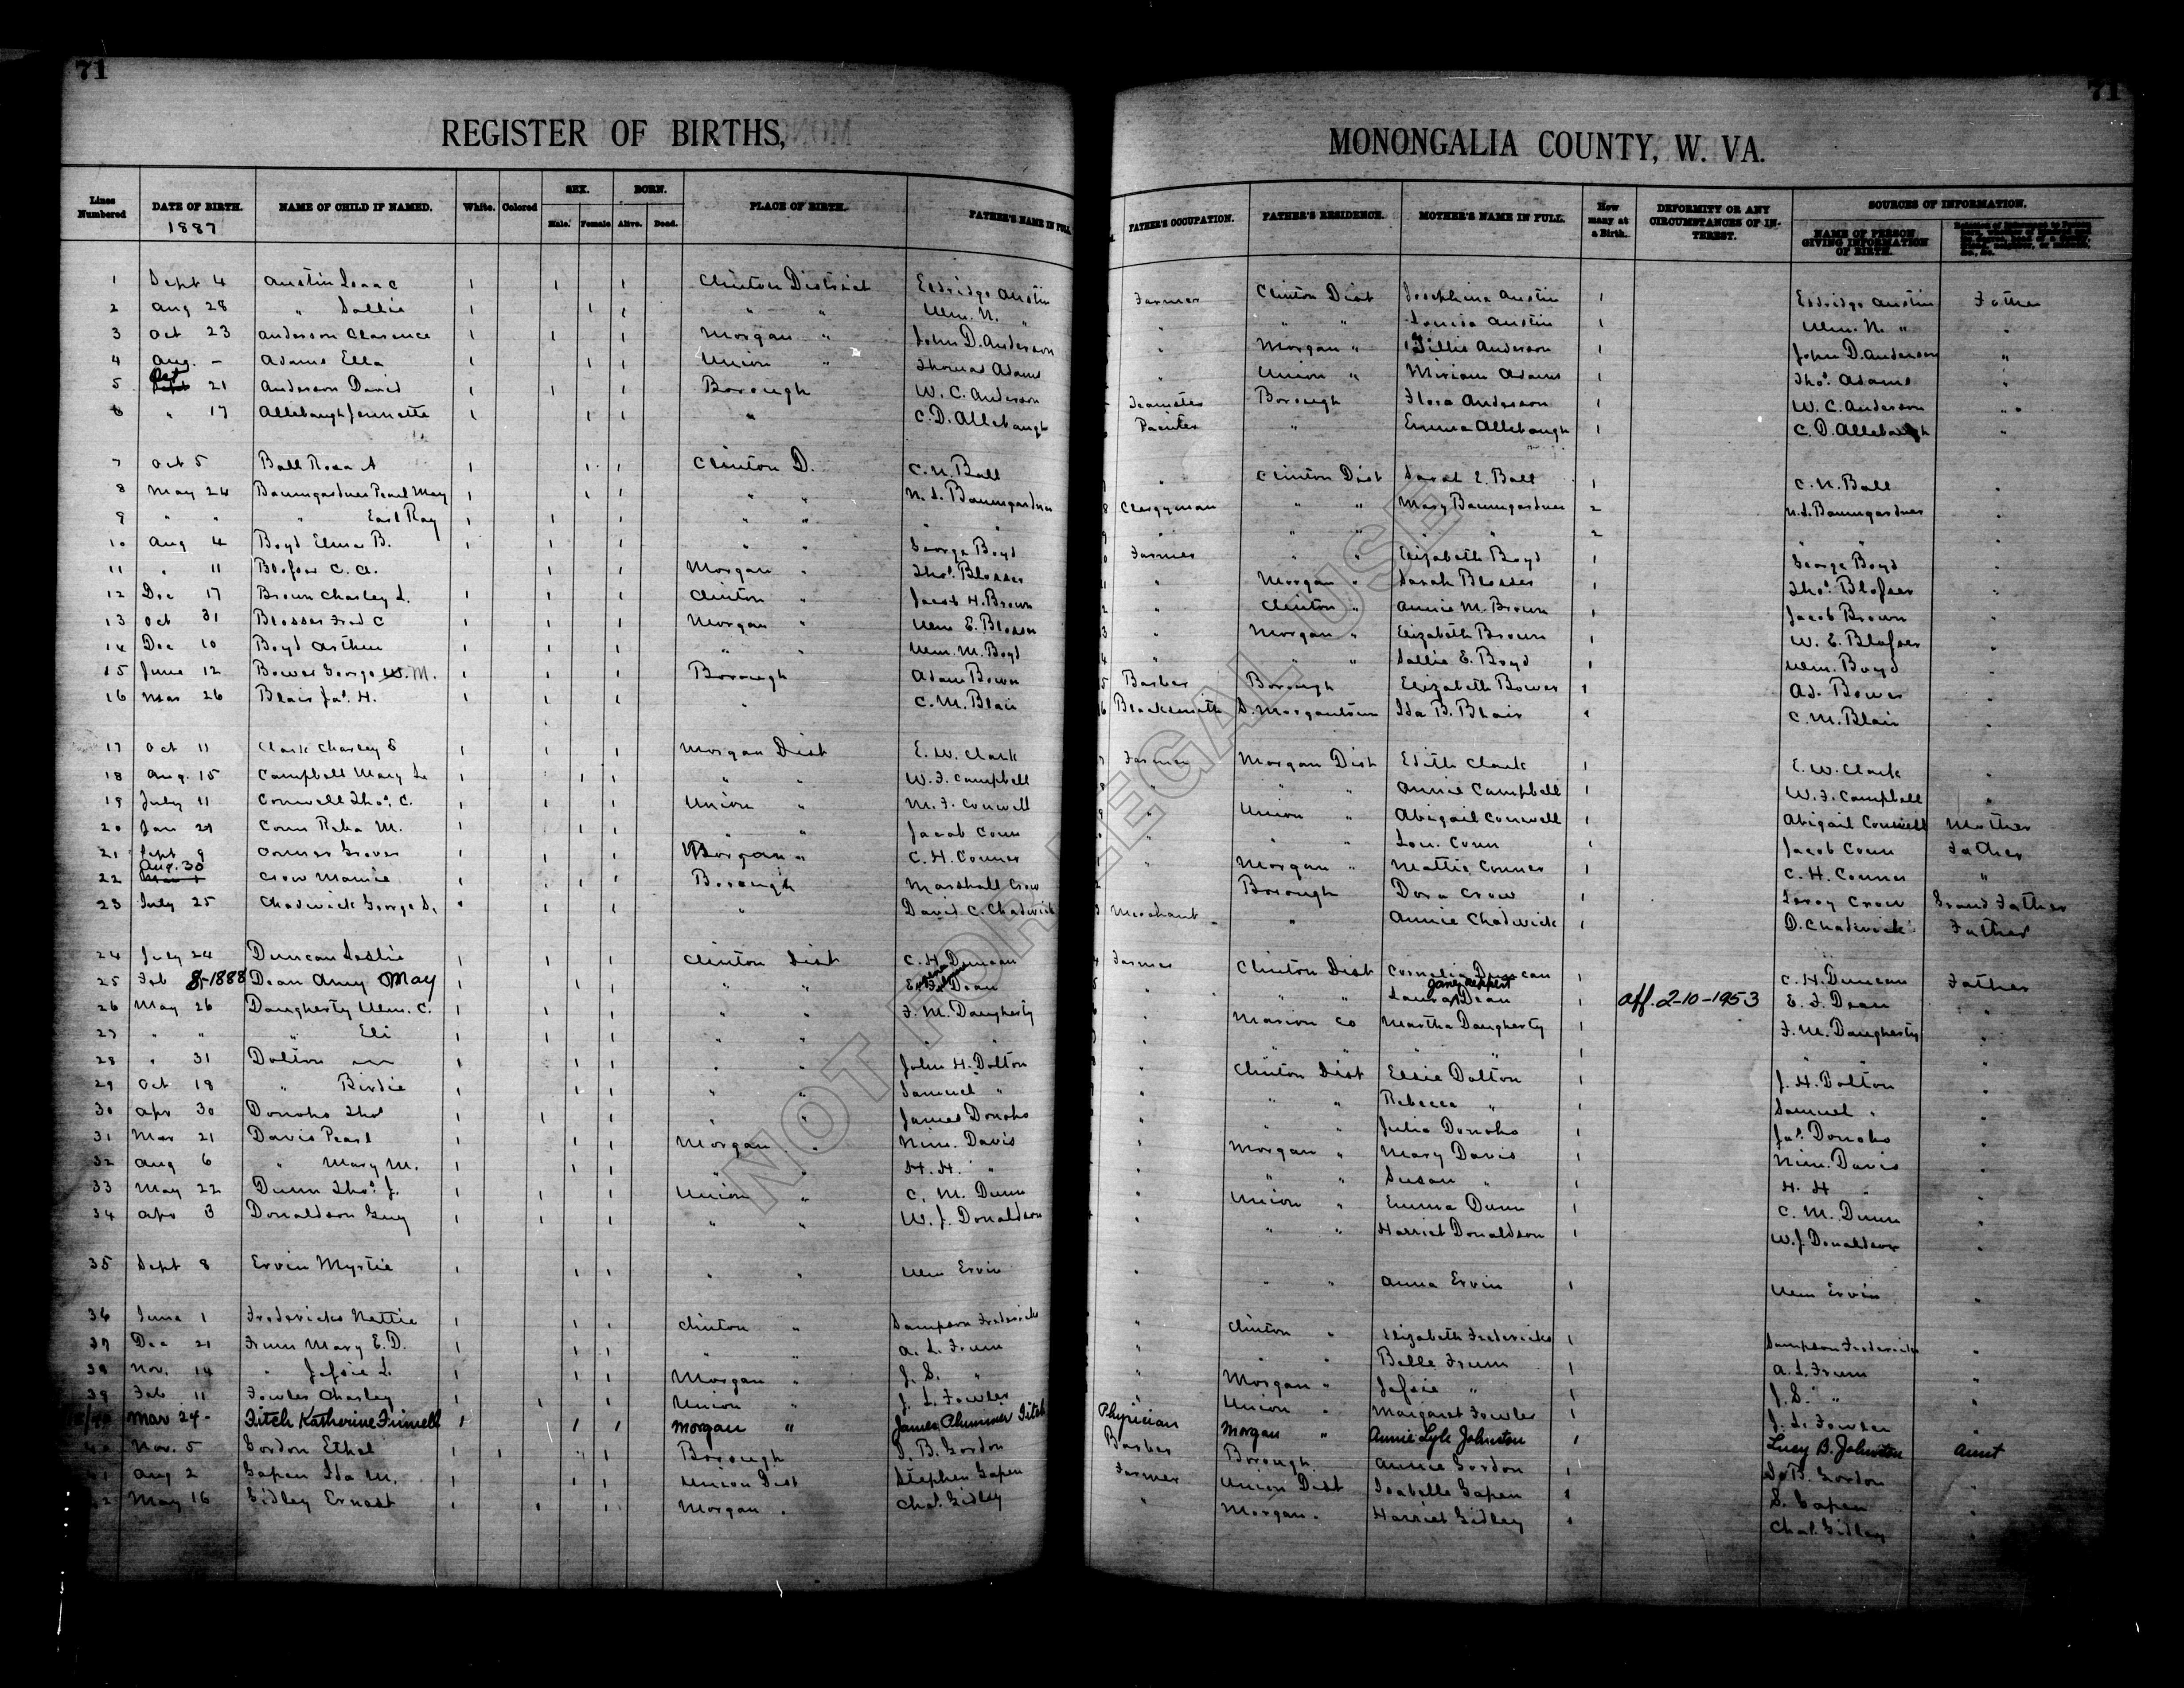 71
71
REGISTER OF BIRTHS,
MONONGALIA COUNTY, W. VA.
Lines Numbered | DATE OF BIRTH. 1887 | NAME OF CHILD IF NAMED. | White. | Colored | SEX. Male. Female | BORN. Alive. Dead. | PLACE OF BIRTH. | FATHER'S NAME IN FULL | FATHER'S OCCUPATION. | FATHER'S RESIDENCE. | MOTHER'S NAME IN FULL. | How many at a Birth. | DEFORMITY OR ANY CIRCUMSTANCES OF INTEREST. | SOURCES OF INFORMATION. NAME OF PERSON GIVING INFORMATION OF BIRTH.
1 Sept 4 Austin Isaac 1 1 1 Clinton District Eldridge Austin Farmer Clinton Dist Josephine Austin 1 Eldridge Austin Father
2 Aug 28 " Sallie 1 1 1 " " Wm. N. " " " " Louisa Austin 1 Wm. N. " "
3 Oct 23 Anderson Clarence 1 1 1 Morgan " John D. Anderson " Morgan " Tillie Anderson 1 John D. Anderson "
4 Aug. - Adams Ella 1 1 1 Union " Thomas Adams " Union " Miriam Adams 1 Thos. Adams "
5 Oct 21 Anderson David 1 1 1 Borough W. C. Anderson Teamster Borough Flora Anderson 1 W. C. Anderson "
6 " 17 Allebaugh Jennette 1 1 1 " C. D. Allebaugh Painter " Emma Allebaugh 1 C. D. Allebaugh "
7 Oct 5 Ball Rosa A 1 1 1 Clinton D. C. N. Ball " Clinton Dist Sarah E. Ball 1 C. N. Ball "
8 May 24 Baumgardner Pearl May 1 1 1 " " N. S. Baumgardner Clergyman " " Mary Baumgardner 2 N. S. Baumgardner "
9 " " " Earl Ray 1 1 1 " " " " " " " " " 2 " " "
10 Aug 4 Boyd Elmer B. 1 1 1 " " George Boyd Farmer " " Elizabeth Boyd 1 George Boyd "
11 " 11 Blosser C. A. 1 1 Morgan " Thos. Blosser " Morgan " Sarah Blosser 1 Thos. Blosser "
12 Dec 17 Brown Charley L. 1 1 1 Clinton " Jacob H. Brown " Clinton " Annie M. Brown 1 Jacob Brown "
13 Oct 31 Blosser Fred C 1 1 1 Morgan " Wm E. Blosser " Morgan " Elizabeth Brown 1 W. E. Blosser "
14 Dec 10 Boyd Arthur 1 1 1 " " Wm. M. Boyd " " " Sallie E. Boyd 1 Wm. Boyd "
15 June 12 Bower George W. M. 1 1 1 Borough Adam Bower Barber Borough Elizabeth Bower 1 Ad. Bower "
16 Mar 26 Blair Jas. H. 1 1 1 " C. M. Blair Blacksmith S. Morgantown Ida B. Blair 1 C. M. Blair "
17 Oct 11 Clark Charley E 1 1 1 Morgan Dist E. W. Clark Farmer Morgan Dist Edith Clark 1 E. W. Clark "
18 Aug. 15 Campbell Mary L. 1 1 1 " " W. F. Campbell " " " Annie Campbell 1 W. F. Campbell "
19 July 11 Conwell Thos. C. 1 1 1 Union " M. F. Conwell " Union " Abigail Conwell 1 Abigail Conwell Mother
20 Jan 29 Conn Reba M. 1 1 1 " " Jacob Conn " " " Lou. Conn 1 Jacob Conn Father
21 Sept 9 Conner Grover 1 1 1 Morgan " C. H. Conner " Morgan " Mattie Conner 1 C. H. Conner "
22 Aug. 30 Crow Mamie 1 1 1 Borough Marshall Crow " Borough Dora Crow 1 Leroy Crow Grand Father
23 July 25 Chadwick George S. 1 1 1 " David C. Chadwick Merchant " Annie Chadwick 1 D. Chadwick Father
24 July 24 Duncan Leslie 1 1 1 Clinton Dist C. H. Duncan Farmer Clinton Dist Cornelia Duncan 1 C. H. Duncan Father
25 Feb 8-1888 Dean Amy May 1 1 1 " " E. F. Dean " " " Laura Jane Reppert Dean 1 Aff. 2-10-1953 E. F. Dean "
26 May 26 Daugherty Wm. C. 1 1 1 " " F. M. Daugherty " Marion Co Martha Daugherty 1 F. M. Daugherty "
27 " " " Eli 1 1 1 " " " " " " " " " 1 " " "
28 " 31 Dalton 1 1 1 " " John H. Dalton " Clinton Dist Elsie Dalton 1 J. H. Dalton "
29 Oct 18 " Birdie 1 1 1 " " Samuel " " " " Rebecca " 1 Samuel " "
30 Apr 30 Donoho Thos 1 1 1 " " James Donoho " " " Julia Donoho 1 Jas. Donoho "
31 Mar 21 Davis Pearl 1 1 1 Morgan " Nim. Davis " Morgan " Mary Davis 1 Nim. Davis "
32 Aug 6 " Mary M. 1 1 1 " " H. H. " " " " Susan " 1 H. H. " "
33 May 22 Dunn Thos. J. 1 1 1 Union " C. M. Dunn " Union " Emma Dunn 1 C. M. Dunn "
34 Apr 3 Donaldson Guy 1 1 1 " " W. J. Donaldson " " " Harriet Donaldson 1 W. J. Donaldson "
35 Sept 8 Ervin Myrtie 1 1 1 " " Wm Ervin " " " Anna Ervin 1 Wm Ervin "
36 June 1 Fredericks Nettie 1 1 1 Clinton " Sampson Fredericks " Clinton " Elizabeth Fredericks 1 Sampson Fredericks "
37 Dec 21 Frum Mary E. D. 1 1 1 " " A. L. Frum " " " Belle Frum 1 A. L. Frum "
38 Nov. 14 " Jessie L. 1 1 1 Morgan " J. S. " " Morgan " Jessie " 1 J. S. " "
39 Feb 11 Fowler Charley 1 1 1 Union " J. L. Fowler " Union " Margaret Fowler 1 J. L. Fowler "
Mar 24- Fitch Katherine Finnell 1 1 1 Morgan " James Plummer Fitch Physician Morgan " Annie Lyle Johnston 1 Lucy B. Johnston Aunt
40 Nov. 5 Gordon Ethel 1 1 1 Borough S. B. Gordon Barber Borough Annie Gordon 1 S. B. Gordon "
41 Aug 2 Gapen Ida M. 1 1 1 Union Dist Stephen Gapen Farmer Union Dist Isabelle Gapen 1 S. Gapen "
42 May 16 Gidley Ernest 1 1 1 Morgan " Chas. Gidley " Morgan " Harriet Gidley 1 Chas. Gidley "
NOT FOR LEGAL USE